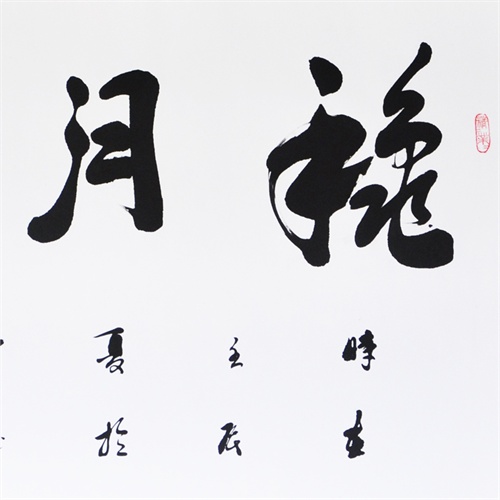 月
時在
壬辰
夏於